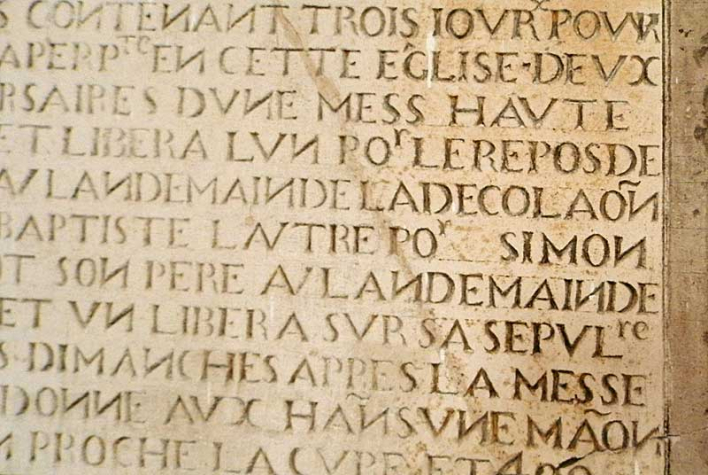 S CONTENANT TROIS IOVRˣ POVR
A PERPᵀᴱ EN CETTE EGLISE·DEVX
RSAIRES DVNE MESS HAVTE
ET LIBERA LVN POʳ LE REPOS DE
AV LANDEMAIN DE LA DECOLAÕN
BAPTISTE LAVTRE POʳ SIMON
OT SON PERE AV LANDEMAIN DE
ET VN LIBERA SVR SA SEPVLʳᵉ
S·DIMANCHES APPRES LA MESSE
DONNE AVX HAÑS VNE MAÕN
N PROCHE LA CVRE ET